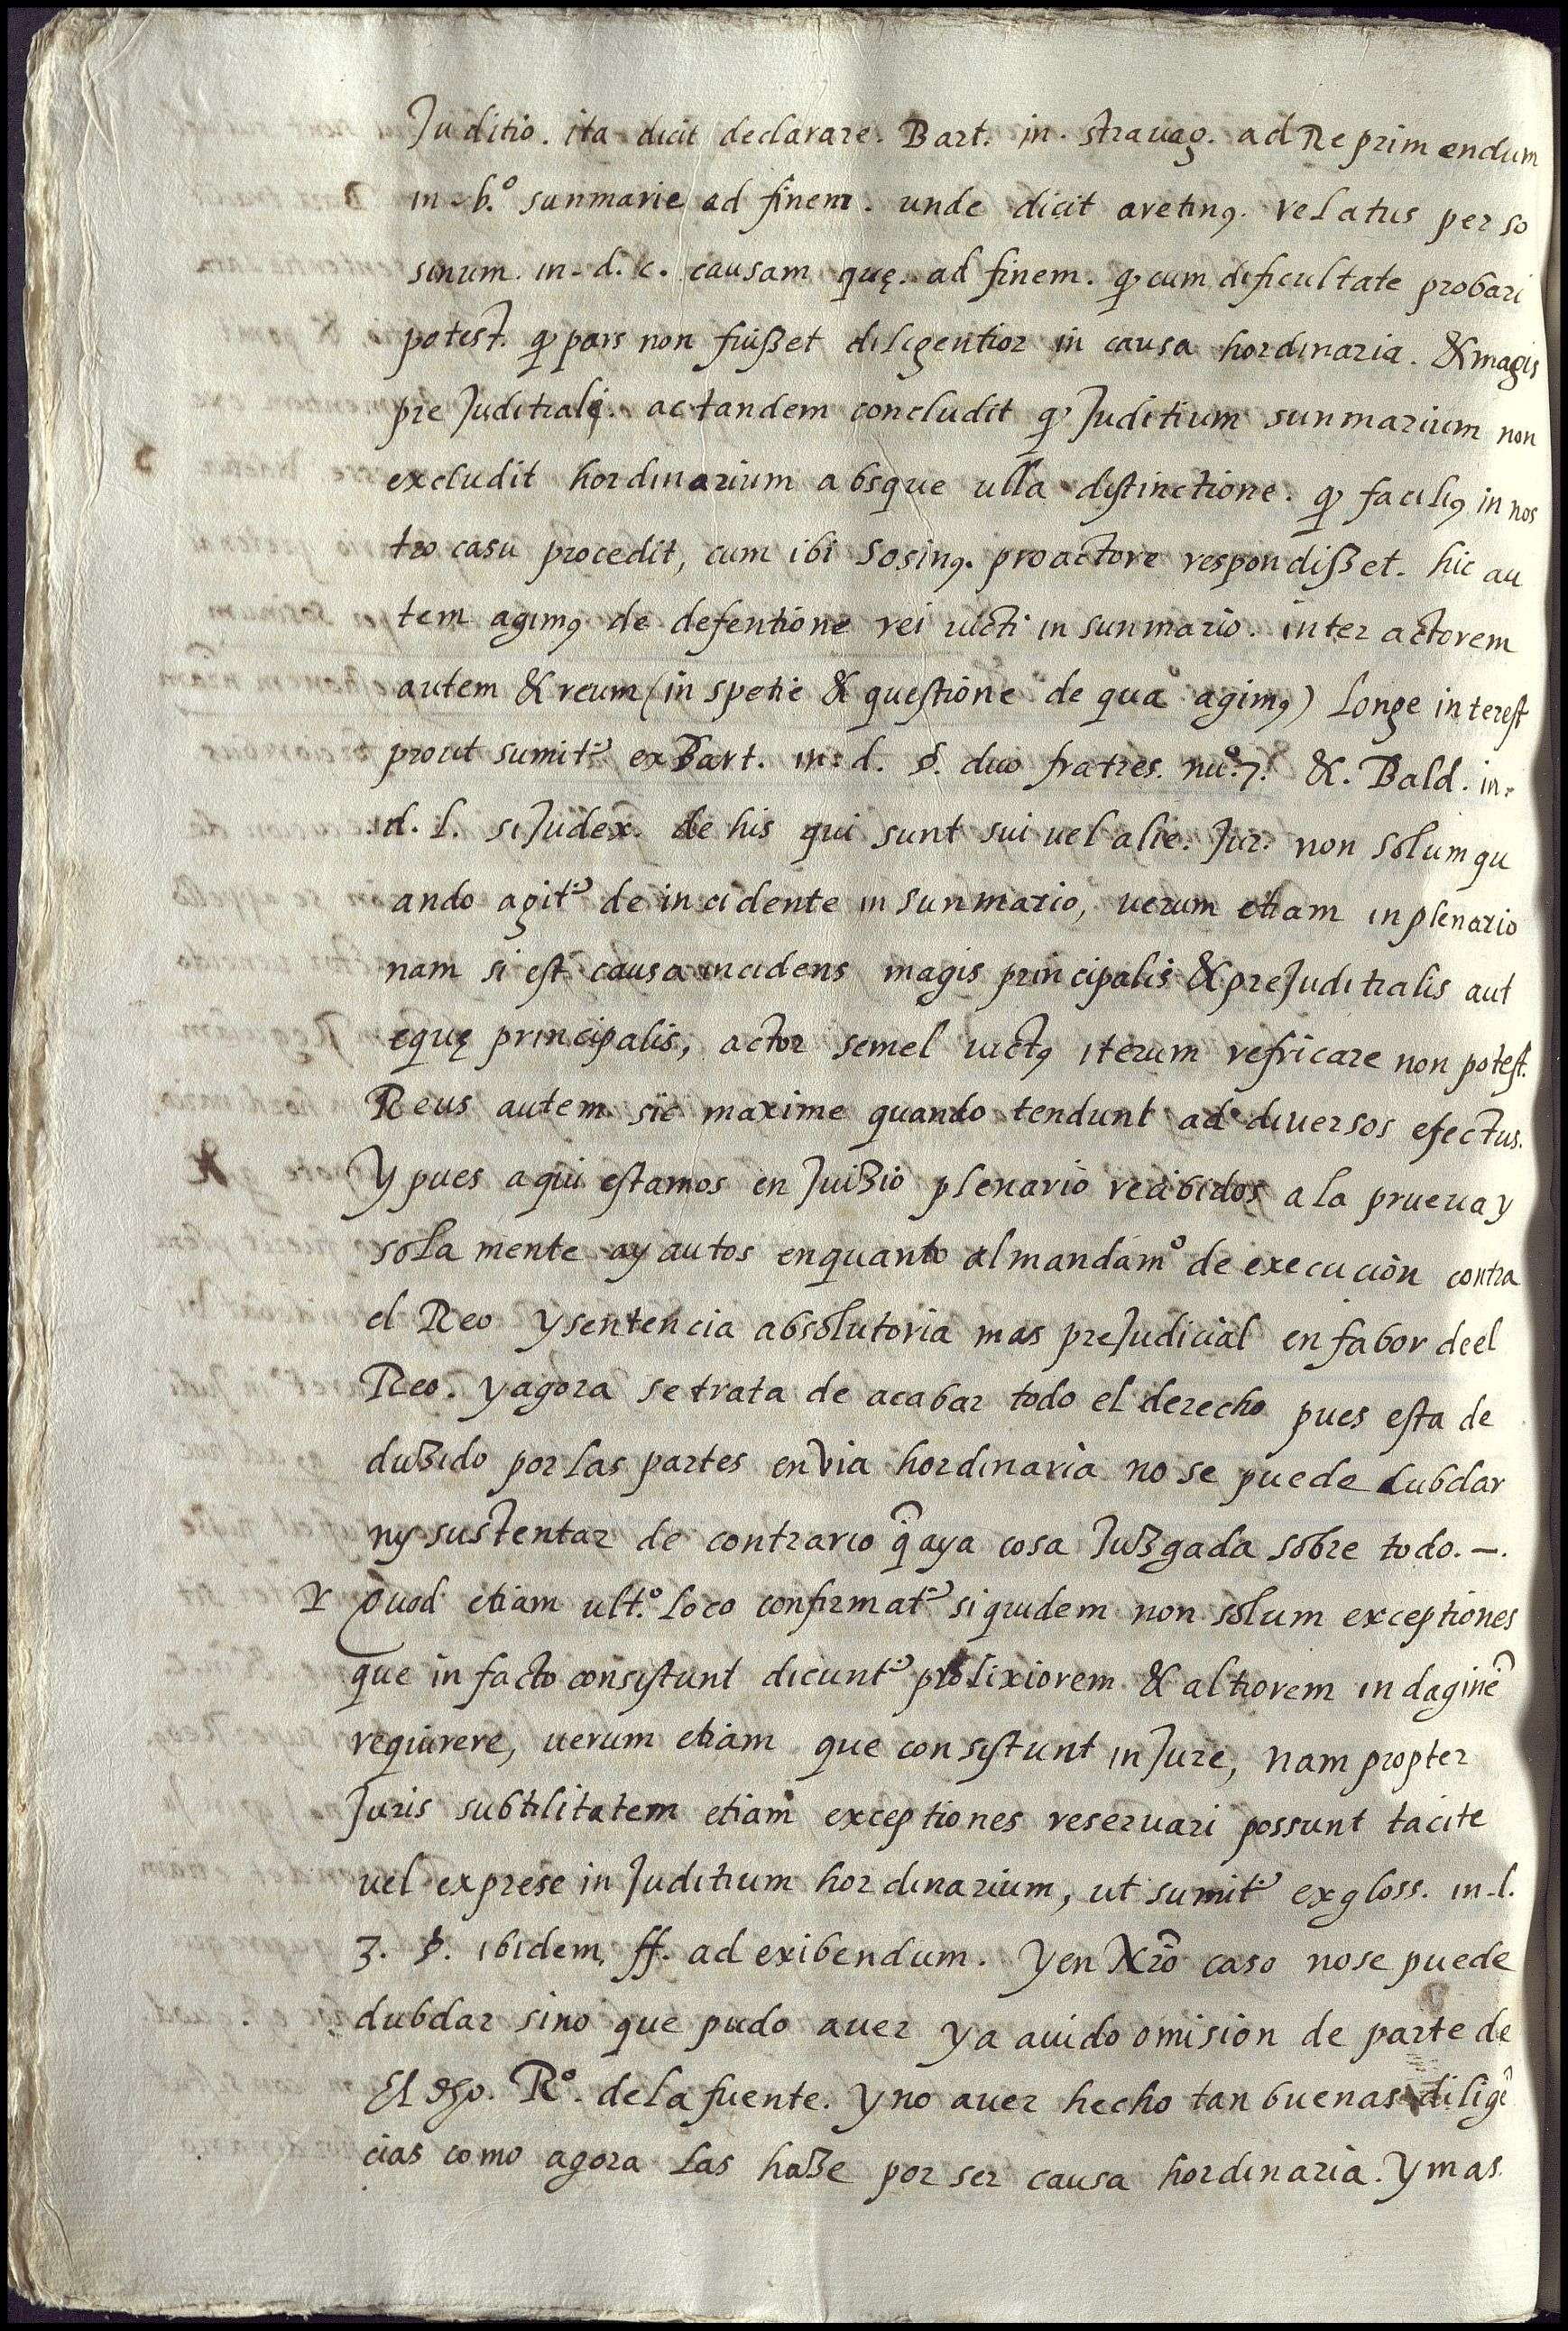 Juditio. ita dicit declarare. Bart. in. stravag. ad Reprimendum
in-b.º sunmarie ad finem. unde dicit aretinꝯ. relatus per so
sinum. in-d. c. causam quę. ad finem. ꝙ cum dificultate probari
potest. ꝙ pars non fuißet diligentior in causa hordinaria. & magis
pre Juditialę. ac tandem concludit ꝙ Juditium sunmarium non
excludit hordinarium absque ulla distinctione. ꝙ faciliꝯ in nos
tro casu procedit, cum ibi Sosinꝯ. pro actore respondißet. hic au
tem agimꝯ de defentione rei victi in sunmario. inter actorem
autem & reum (in spetie & questione de qua agimꝯ) Longe interest
prout sumitʳ ex Bart. in. d. §. duo fratres. nuº.7. &. Bald. in.
d. l. si Judex. de his qui sunt sui vel alie. Jur. non solum qu
ando agitʳ de incidente in sunmario, uerum etiam in plenario
nam si est causa incidens magis principalis & preJuditialis aut
equę principalis, actor semel victꝯ iterum refricare non potest.
Reus autem sic maxime quando tendunt ad diuersos efectus.
Y pues aqui estamos en Juizio plenario recibidos a la prueua y
sola mente ay autos en quanto al mandamº de execucion contra
el Reo y sentencia absolutoria mas preJudicial en fabor de el
Reo. y agora se trata de acabar todo el derecho pues esta de
duzido por las partes en via hordinaria no se puede dubdar
ny sustentar de contrario q̃ aya cosa Juzgada sobre todo. –.
r Quod etiam ult.º Loco confirmatʳ siquidem non solum exceptiones
que in facto consistunt dicuntʳ prolixiorem & altiorem indaginẽ
requirere, uerum etiam que consistunt in Jure, nam propter
Juris subtilitatem etiam exceptiones reseruari possunt tacite
vel exprese in Juditium hordinarium, ut sumitʳ ex gloss. in-l.
3. §. ibidem, ff. ad exibendum. Y en Nr̃o caso no se puede
dubdar sino que pudo aver y a auido omision de parte de
El dho. Rº. de la fuente. Y no aver hecho tan buenas diligẽ
cias como agora las haze por ser causa hordinaria. Y mas